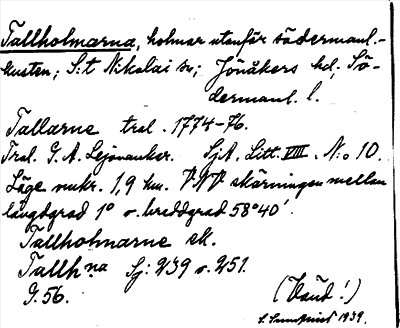 Tallholmarna, holmar utanför södermanl.-
kusten; S:t Nikolai sn; Jönåkers hd, Sö-
dermanl. l.
Tallarne tral. 1774-76.
Tral. G. A. Lejonanker. SjA. Litt. VIII. No 10.
Läge mukr. 1,9 km. VNV skärningen mellan
längdgrad 1° o. breddgrad 58°40'.
Tallholmarne sk.
Tallh:na Sj: 239 o. 251.
G. 56.
(Vaud!)
S. Sundqvist 1939.